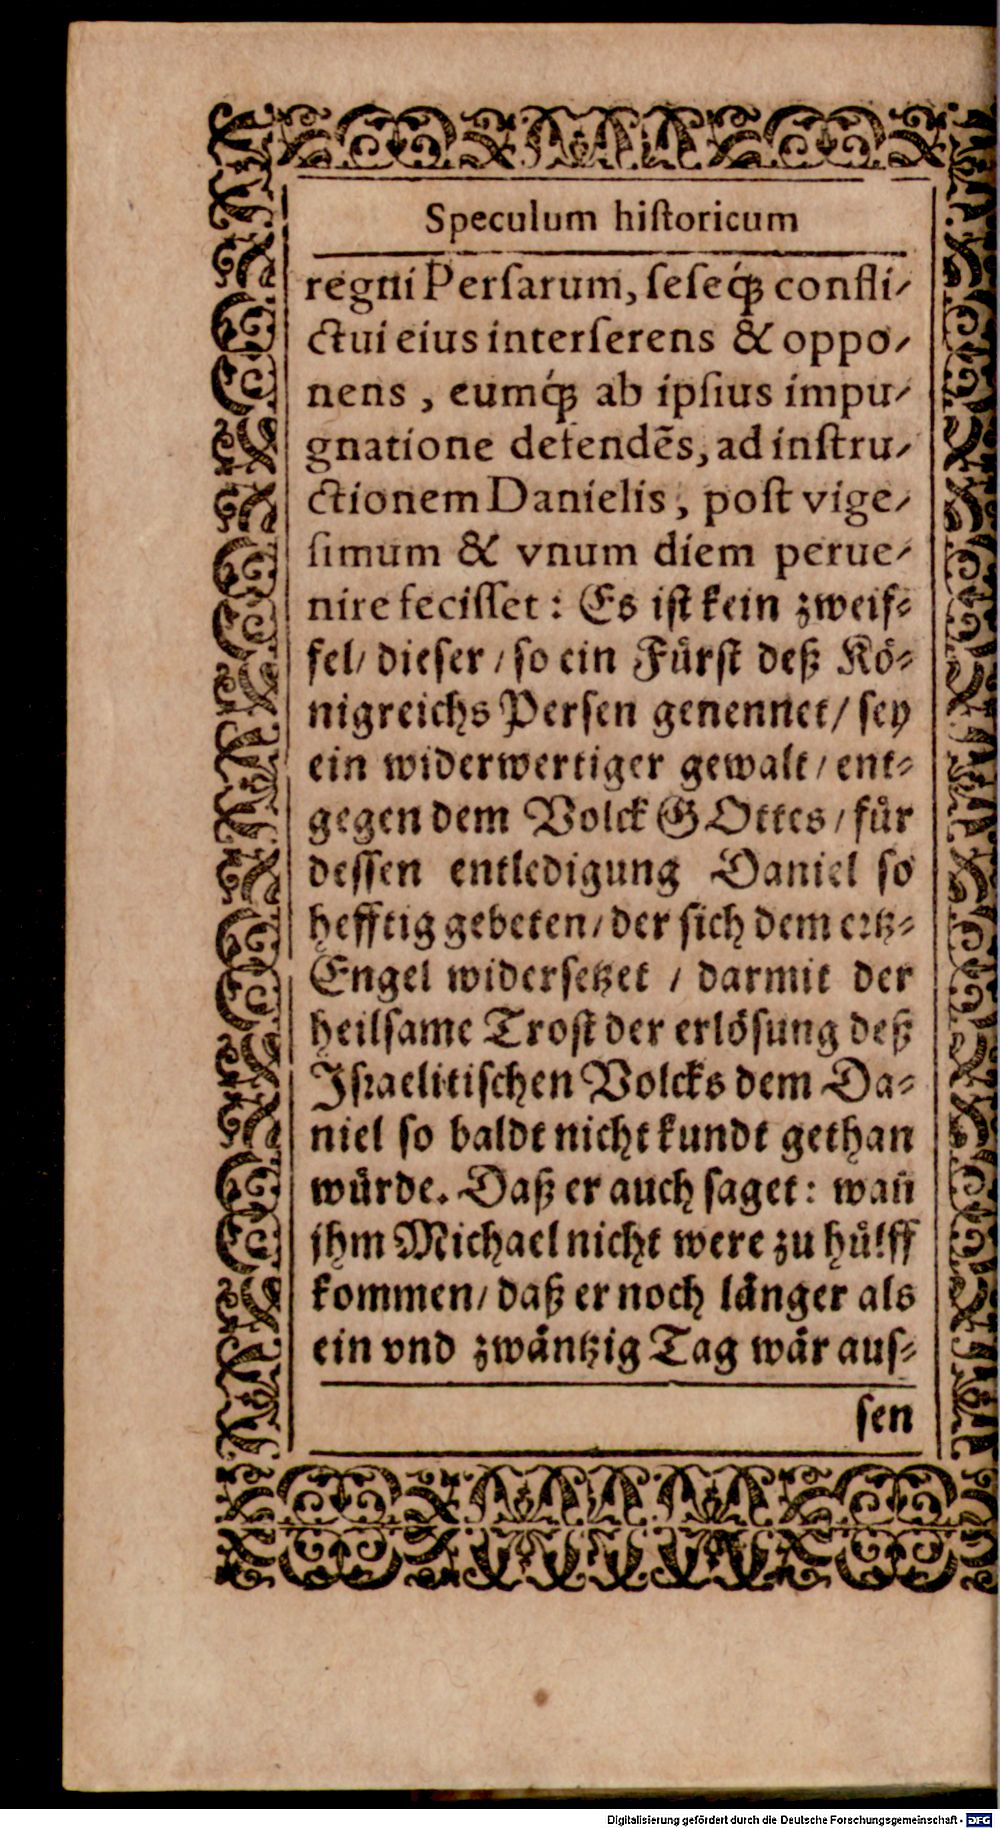 Speculum hiſtoricum
regni Perſarum, ſeſeq́ꝫ confli-
ctui eius interſerens & oppo-
nens, eumq́ꝫ ab ipſius impu-
gnatione defendẽs, ad inſtru-
ctionem Danielis, poſt vige-
ſimum & vnum diem perue-
nire feciſſet: Es iſt kein zweif-
fel/ dieſer/ ſo ein Fürſt deß Kö-
nigreichs Perſen genennet/ ſey
ein widerwertiger gewalt/ ent-
gegen dem Volck GOttes/ für
deſſen entledigung Daniel ſo
hefftig gebeten/ der ſich dem ertz-
Engel widerſetzet / darmit der
heilſame Troſt der erlöſung deß
Iſraelitiſchen Volcks dem Da-
niel ſo baldt nicht kundt gethan
würde. Daß er auch ſaget: wañ
jhm Michael nicht were zu hülff
kommen/ daß er noch länger als
ein vnd zwäntzig Tag wär auſ-
ſen
Digitalisierung gefördert durch die Deutsche Forschungsgemeinschaft - DFG